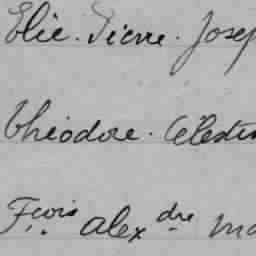 Elie. Pierre. Josep
Théodore. Célestin
Fçois alexdre ma